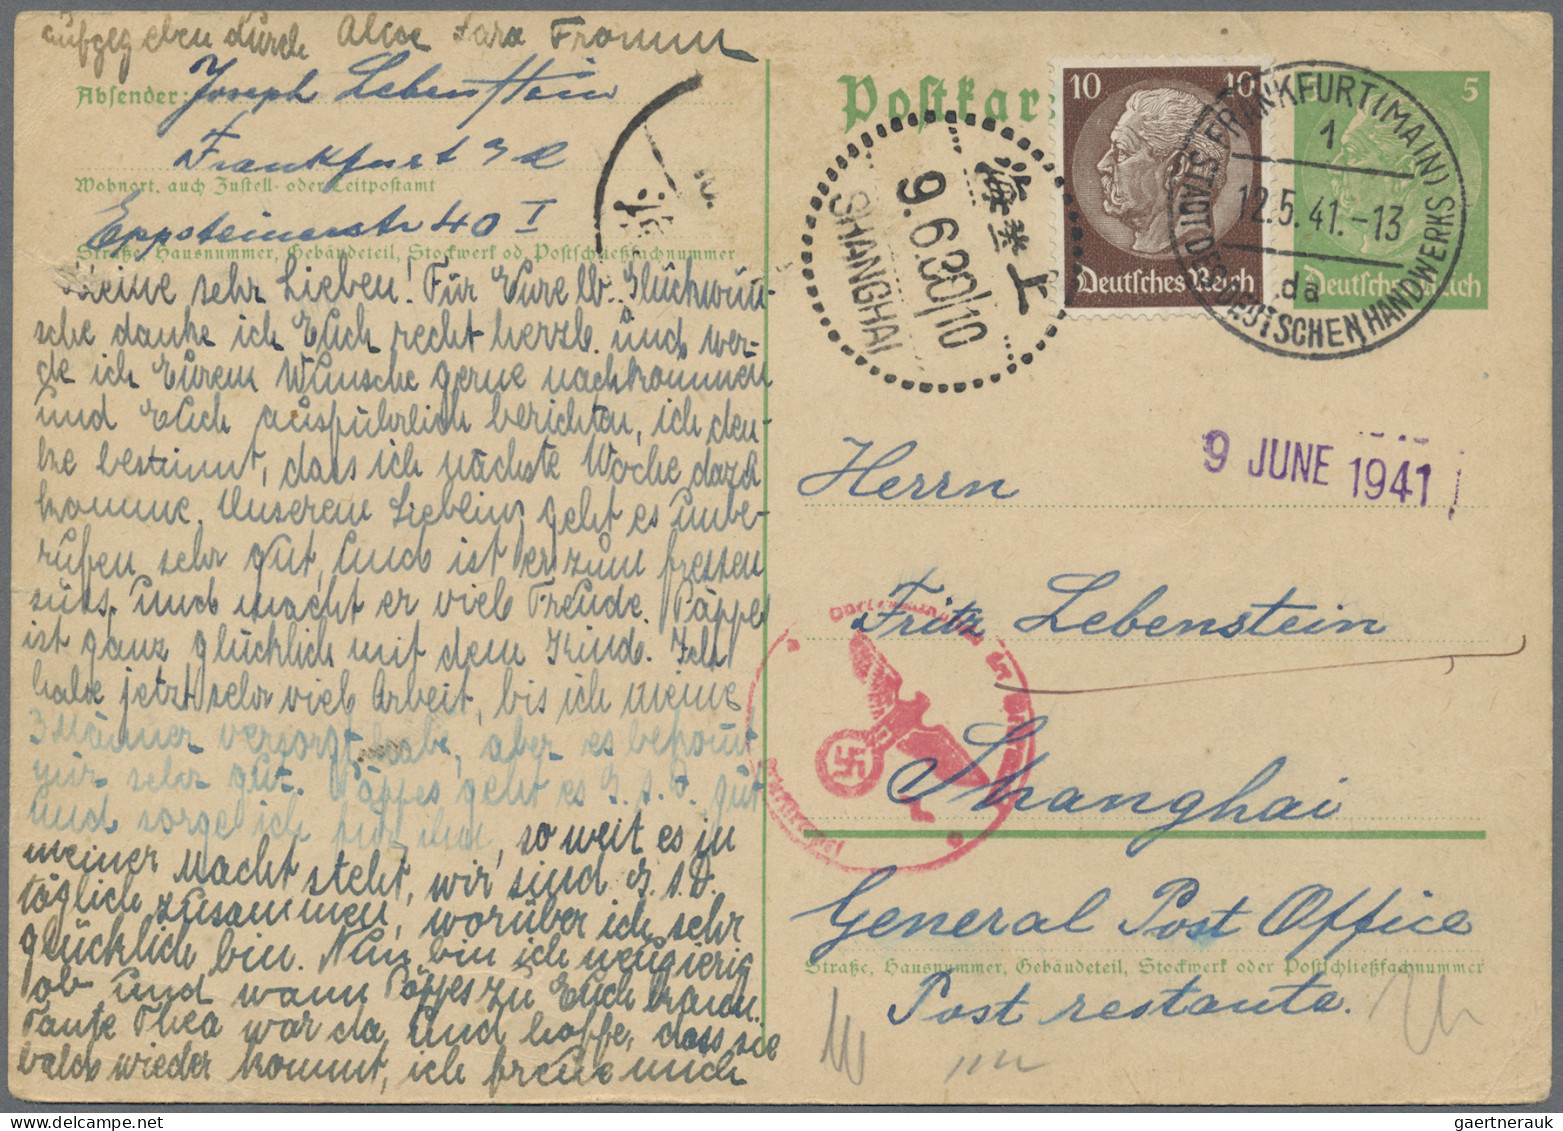 aufgegeben durch Alice Sara Fromm
Absender: Joseph Lebenstein
Frankfurt
Wohnort, auch Zustell- oder Leitpostamt
Eppsteinerstr 40 I
Straße, Hausnummer, Gebäudeteil, Stockwerk od. Postschließfachnummer
Meine sehr Lieben! Für Eure lb. Glückwün-
sche danke ich Euch recht herzl. und wer-
de ich Eurem Wunsche gerne nachkommen
und Euch ausführlich berichten, ich den-
ke bestimmt, dass ich nächste Woche dazu
komme. Unserem Liebling geht es unbe-
rufen sehr gut, und ist er zum fressen
süss. und macht er viel Freude. Päppes
ist ganz glücklich mit dem Kind. Ich
habe jetzt sehr viel Arbeit, bis ich meine
3 Männer versorgt habe, aber es bekommt
mir sehr gut. Päppes geht es G. s. D. gut
und sorge ich für ihn, so weit es in
meiner Macht steht, wir sind G. s. D.
täglich zusammen, worüber ich sehr
glücklich bin. Nun bin ich neugierig
ob und wann Päppes zu Euch kann.
Tante Thea war da und hoffe, dass sie
bald wieder kommt, ich freue mich
Postkar
10 10
Deutsches Reich
5 5
Deutsches Reich
FRANKFURT (MAIN)
1
12.5.41.-13
da
STADT DES DEUTSCHEN HANDWERKS
上海
9.6.30|10
SHANGHAI
9 JUNE 1941
Herrn
Fritz Lebenstein
Shanghai
General Post Office
Straße, Hausnummer, Gebäudeteil, Stockwerk oder Postschließfachnummer
Post restante.
gaertnerauk